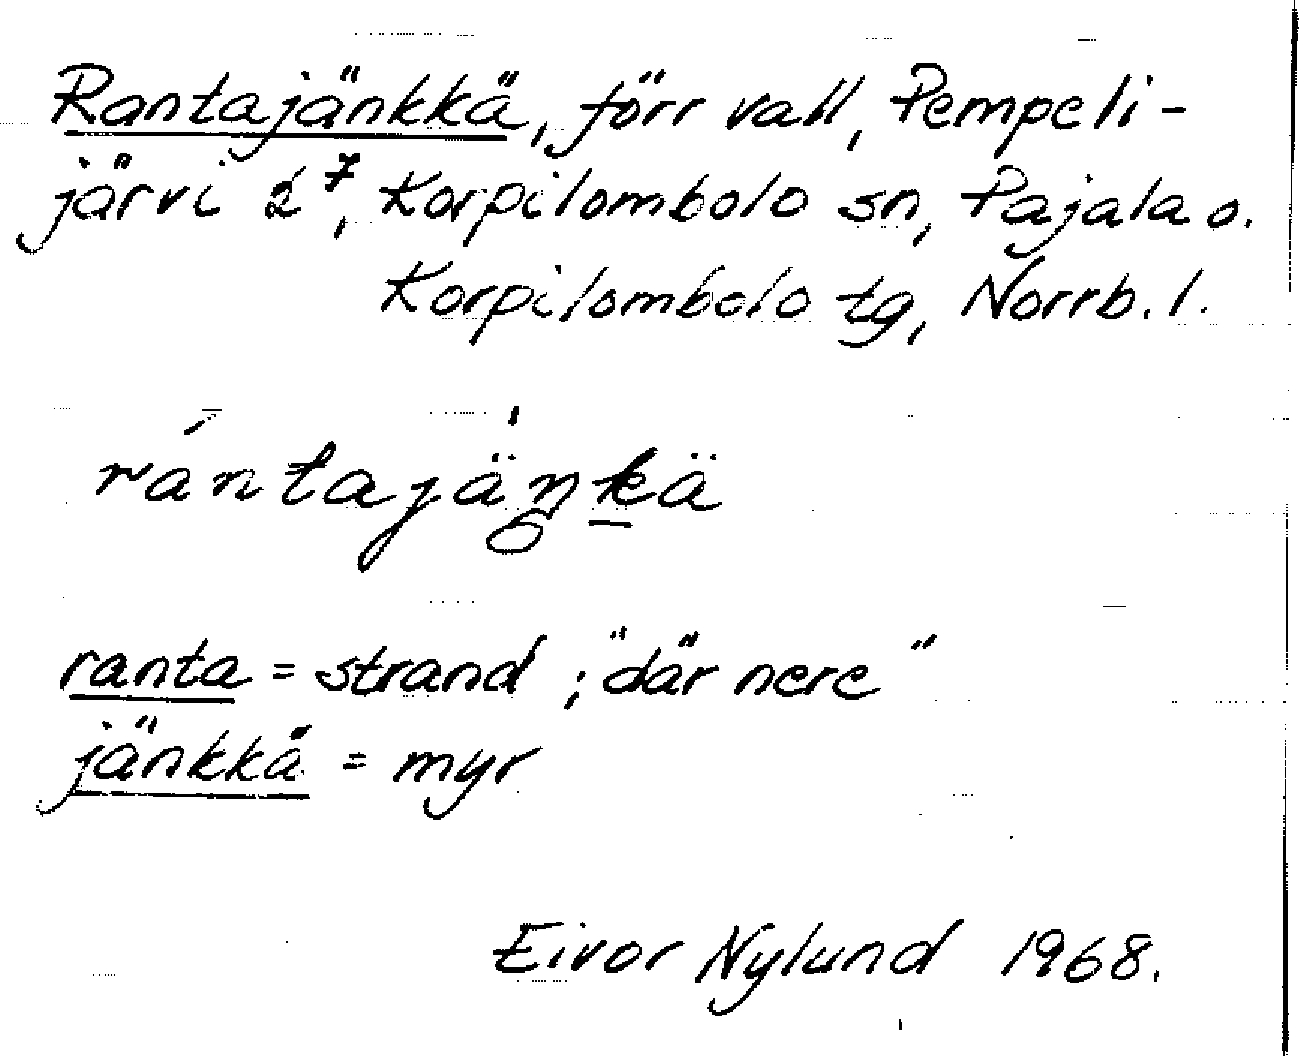 Rantajänkkä, förr vall, Pempeli-
järvi 2⁷, Korpilombolo sn, Pajala o.
Korpilombolo tg, Norrb. l.
rántajäŋ̀kä
ranta = strand ; "där nere"
jänkkä = myr
Eivor Nylund 1968.